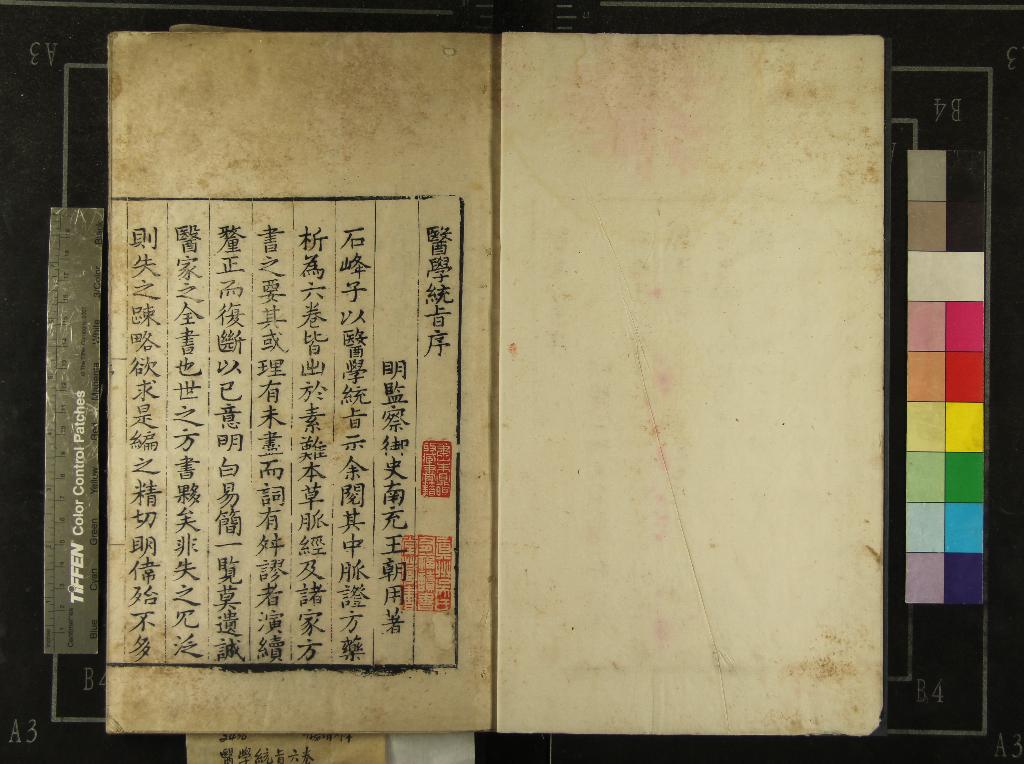 醫學統旨序
明監察御史南充王朝用著
石峰子以醫學統旨示余閱其中脈證方藥
析為六卷皆出於素難本草脈經及諸家方
書之要其或理有未盡而詞有舛謬者演續
釐正而復斷以已意明白易簡一覽莫遺誠
醫家之全書也世之方書夥矣非失之冗泛
則失之踈略欲求是編之精切明偹殆不多
醫學統旨六卷
TIFFEN Color Control Patches
Centimetres
Blue
Cyan
Green
Yellow
Red
Magenta
White
3/Color
Black
A3
B4
A3
B4
B4
A3